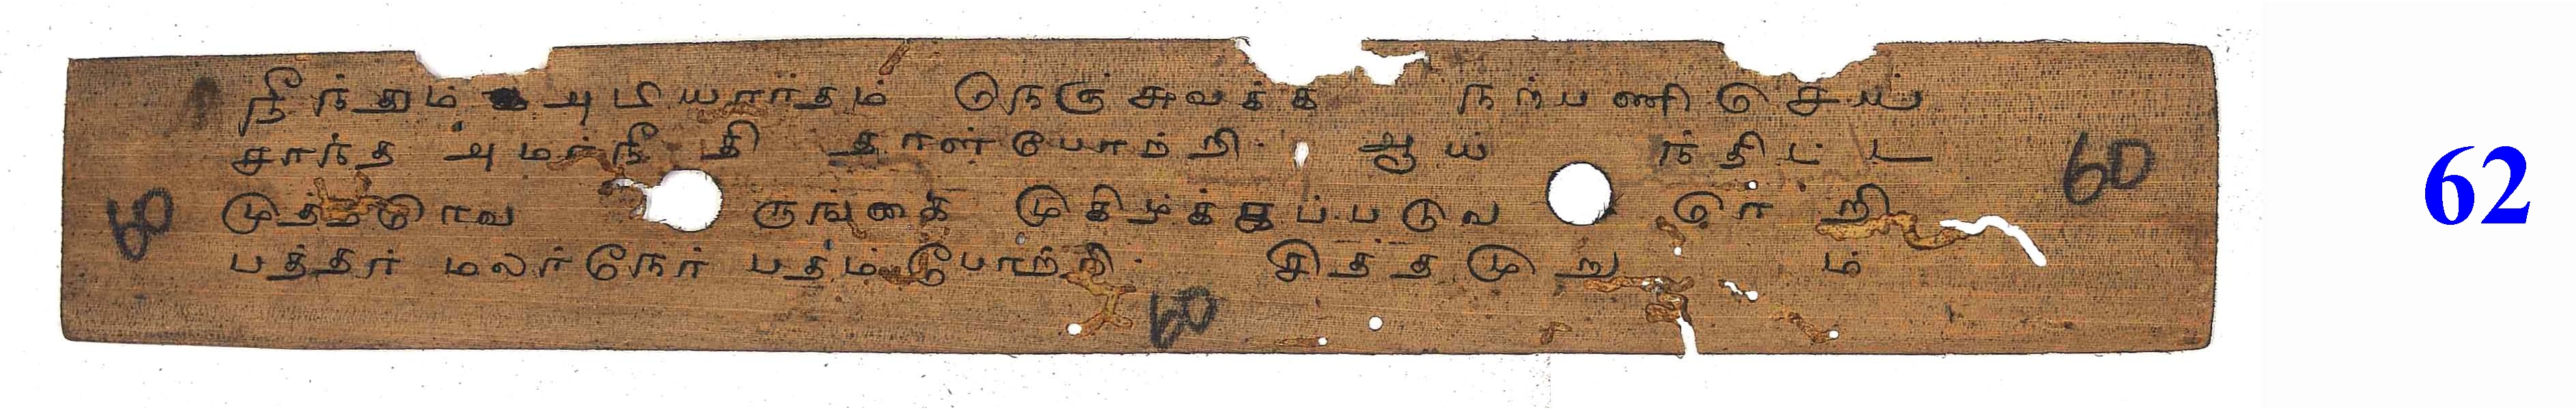 நீந்தும் அடியார்தம் நெஞ்சுவக்க நற்பணிசெய்
சாந்த அமர்நீதி தாள்போற்றி ஆய்ந்திட்ட
முத்தடுாவ ருங்கை முகிழ்க்கப்படுவ ரேறி
பத்தர் மலர்நேர் பதம்போற்றி சித்தமுறும்
60
60
60
62